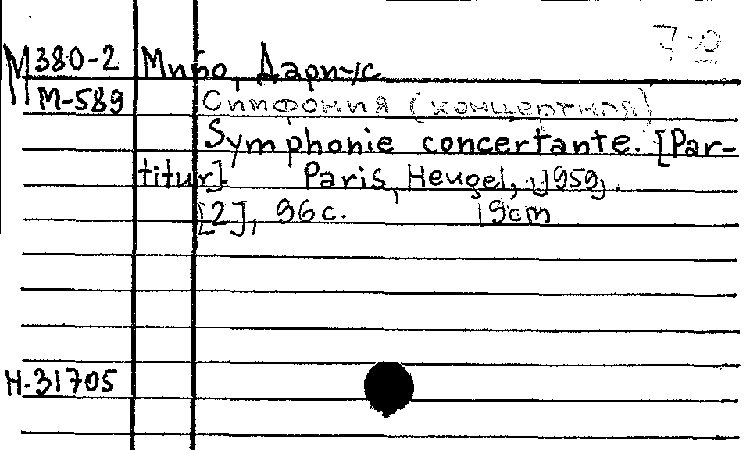 M380-2 Мийо, Дариус
М-589 Симфония (концертная)
Symphonie concertante. [Par-
titur]. Paris, Heugel, 1959.
[2], 96 с. 19cm
Н-31705